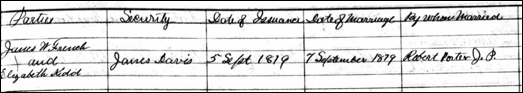 Parties Security Date of Issuance Date of Marriage By whom Married
James W. French
and James Davis 5 Sept 1879 7 September 1879 Robert Porter J. P.
Elizabeth Kidd